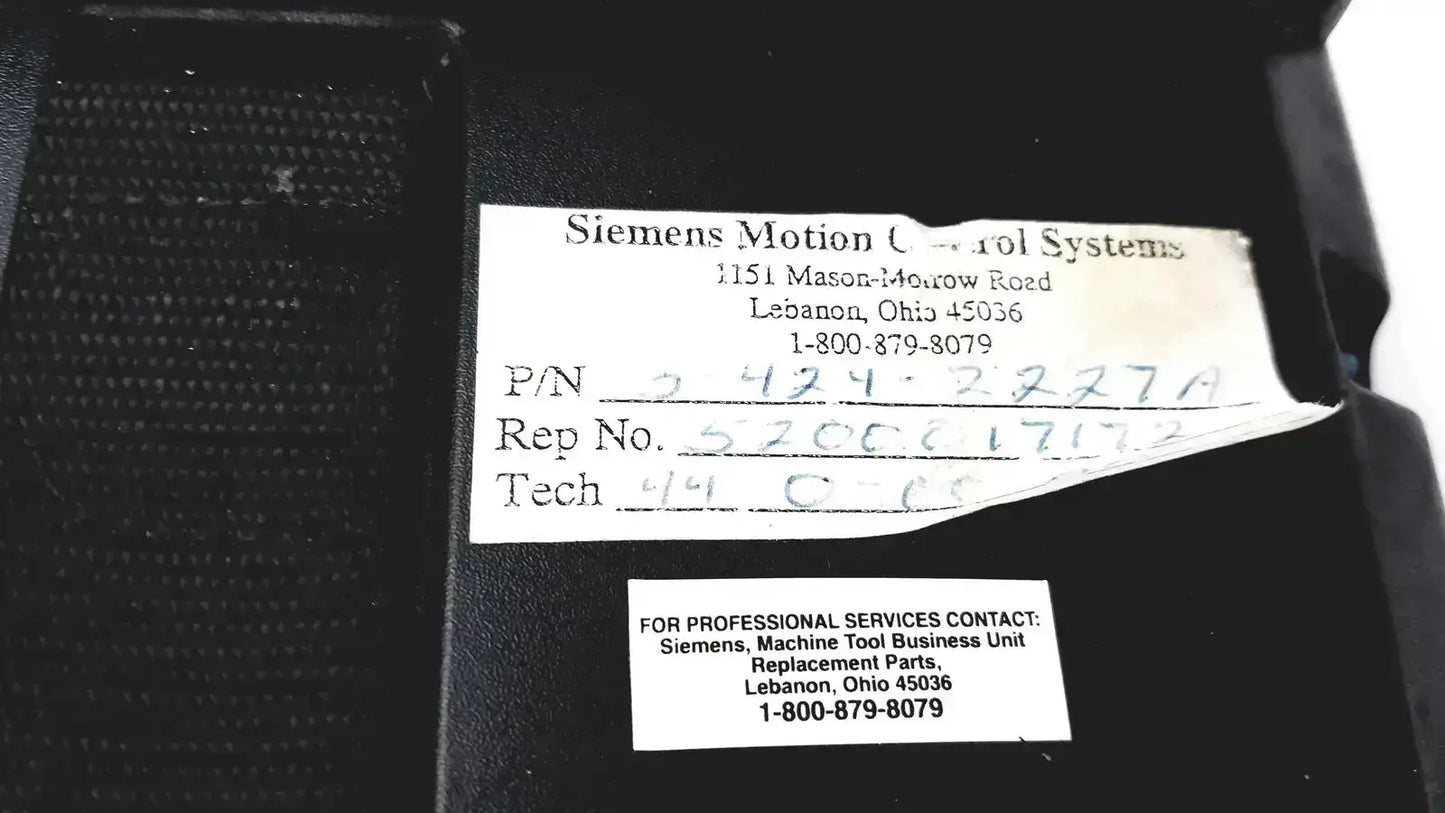 Siemens Motion Systems
1151 Mason-Morrow Road
Lebanon, Ohio 45036
1-800-879-8079
P/N 424-2227A
Rep No.
Tech 44
FOR PROFESSIONAL SERVICES CONTACT:
Siemens, Machine Tool Business Unit
Replacement Parts,
Lebanon, Ohio 45036
1-800-879-8079